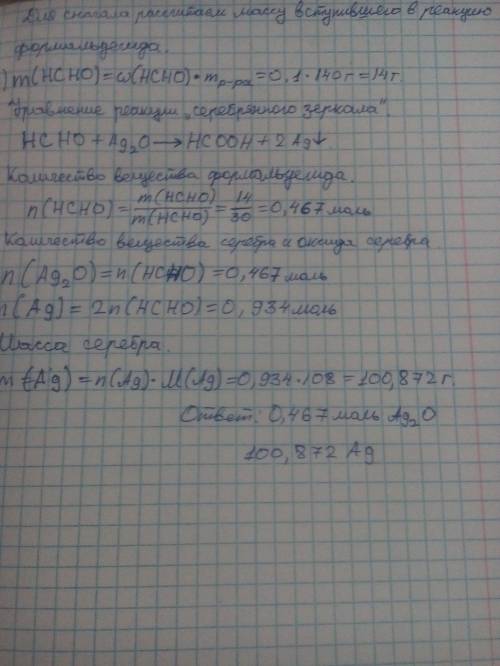 Для сначала рассчитаем массу вступившего в реакцию
формальдегида.
) m(HCHO) = ω(HCHO) · m р-ра = 0,1 · 140 г = 14 г.
Уравнение реакции „серебрянного зеркала".
HCHO + Ag₂O → HCOOH + 2Ag↓
Количество вещества формальдегида.
n(HCHO) = m(HCHO)/m(HCHO) = 14/30 = 0,467 моль
Количество вещества серебра и оксида серебра
n(Ag₂O) = n(HCHO) = 0,467 моль
n(Ag) = 2n(HCHO) = 0,934 моль
Масса серебра.
m(Ag) = n(Ag) · M(Ag) = 0,934 · 108 = 100,872 г.
Ответ: 0,467 моль Ag₂O
100,872 Ag